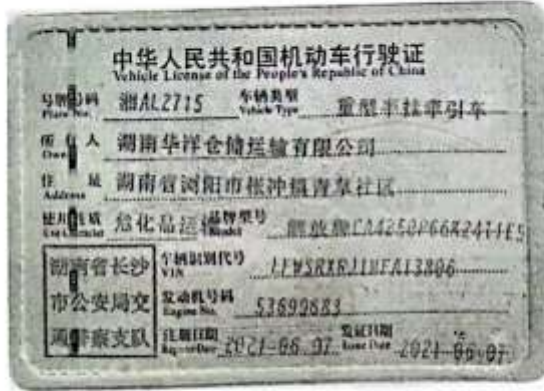 中华人民共和国机动车行驶证
Vehicle License of the People's Republic of China
号牌号码 Plate No. 湘AL2715 车辆类型 Vehicle Type 重型半挂牵引车
所有人 Owner 湖南华洋仓储运输有限公司
住址 Address 湖南省浏阳市枨冲镇青草社区
使用性质 Use Character 危化品运输 品牌型号 Model 解放牌CA4250P66K24T1E5
湖南省长沙市公安局交通警察支队
车辆识别代号 VIN
发动机号码 Engine No. 53699683
注册日期 Register Date 2021-06-07 发证日期 Issue Date 2021-06-07